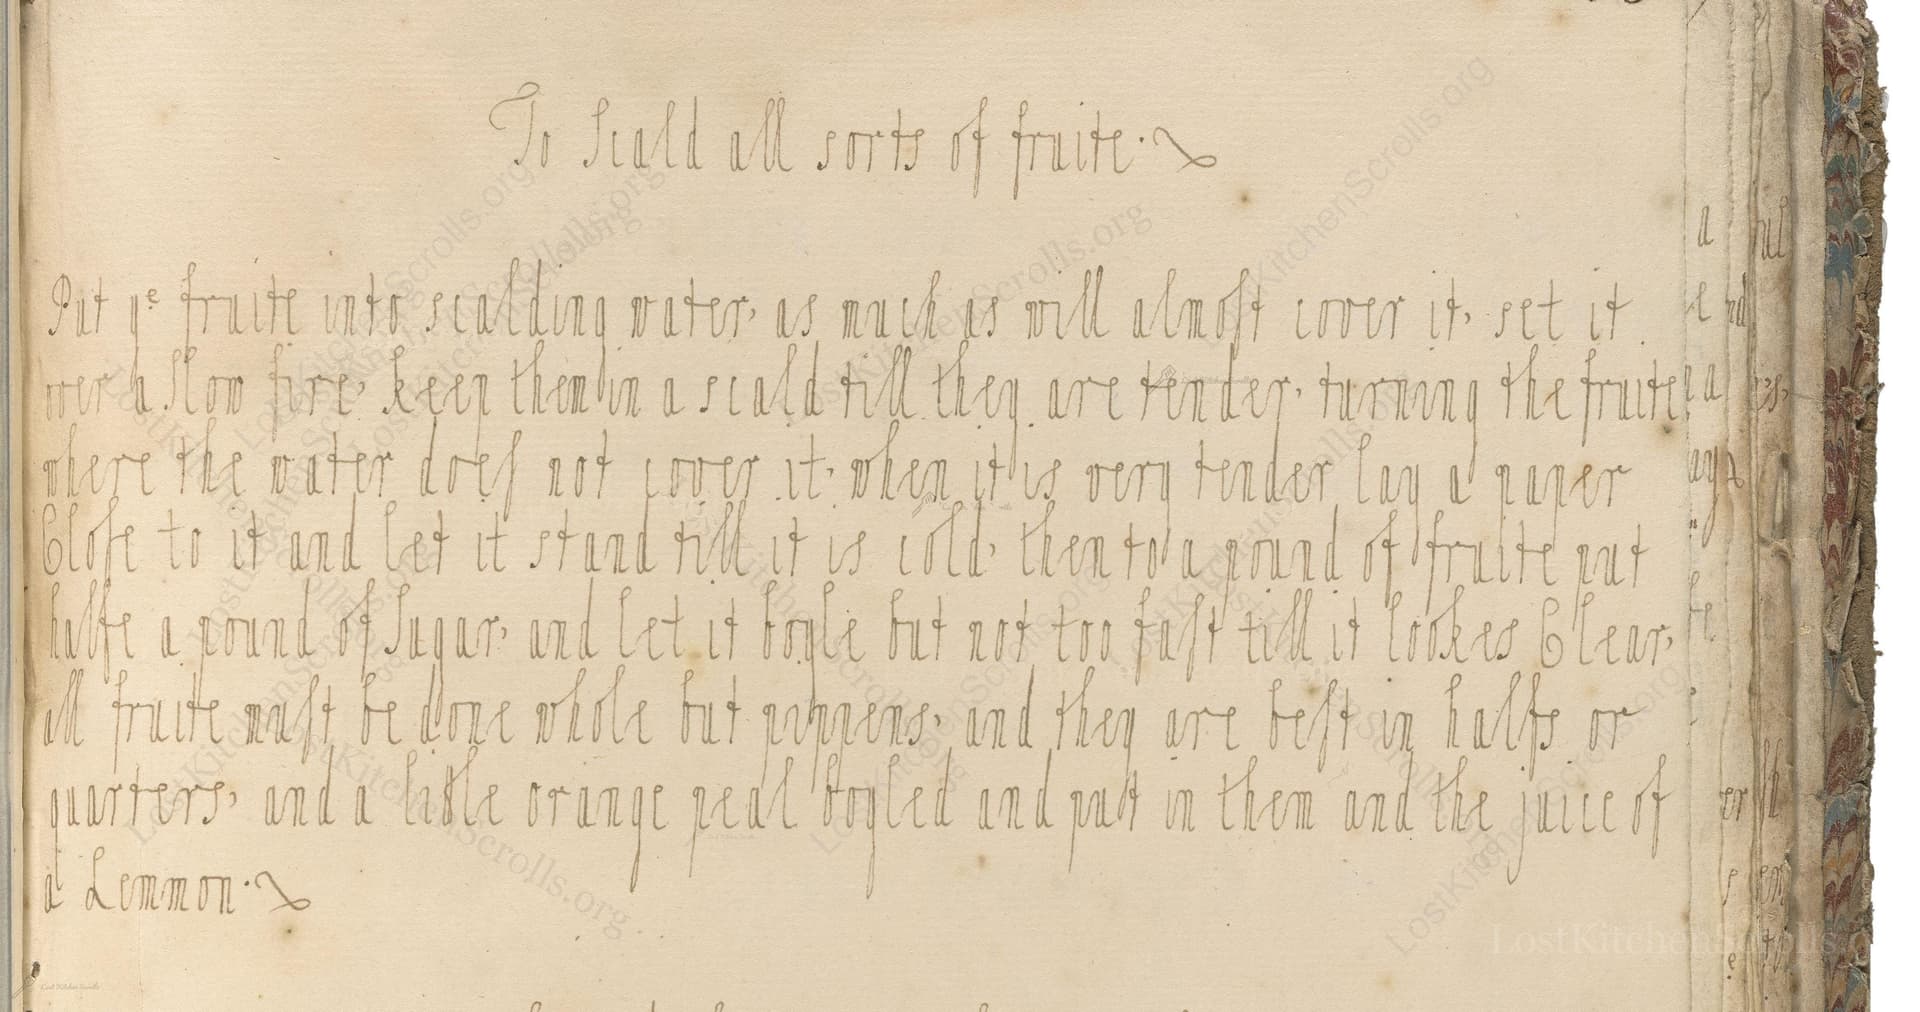 To Scald all sorts of fruite.
Put yᵉ fruite into scalding water, as much as will almost cover it, set it
over a slow fire, keep them in a scald till they are tender, turning the fruite
where the water does not cover it, when it is very tender lay a paper
Close to it and let it stand till it is cold, then to a pound of fruite put
halfe a pound of Sugar, and let it boyle but not too fast till it lookes Clear,
all fruite must be done whole but pippens, and they are best in halfs or
quarters, and a little orange peal boyled and put in them and the juice of
a Lemmon.
LostKitchenScrolls.org